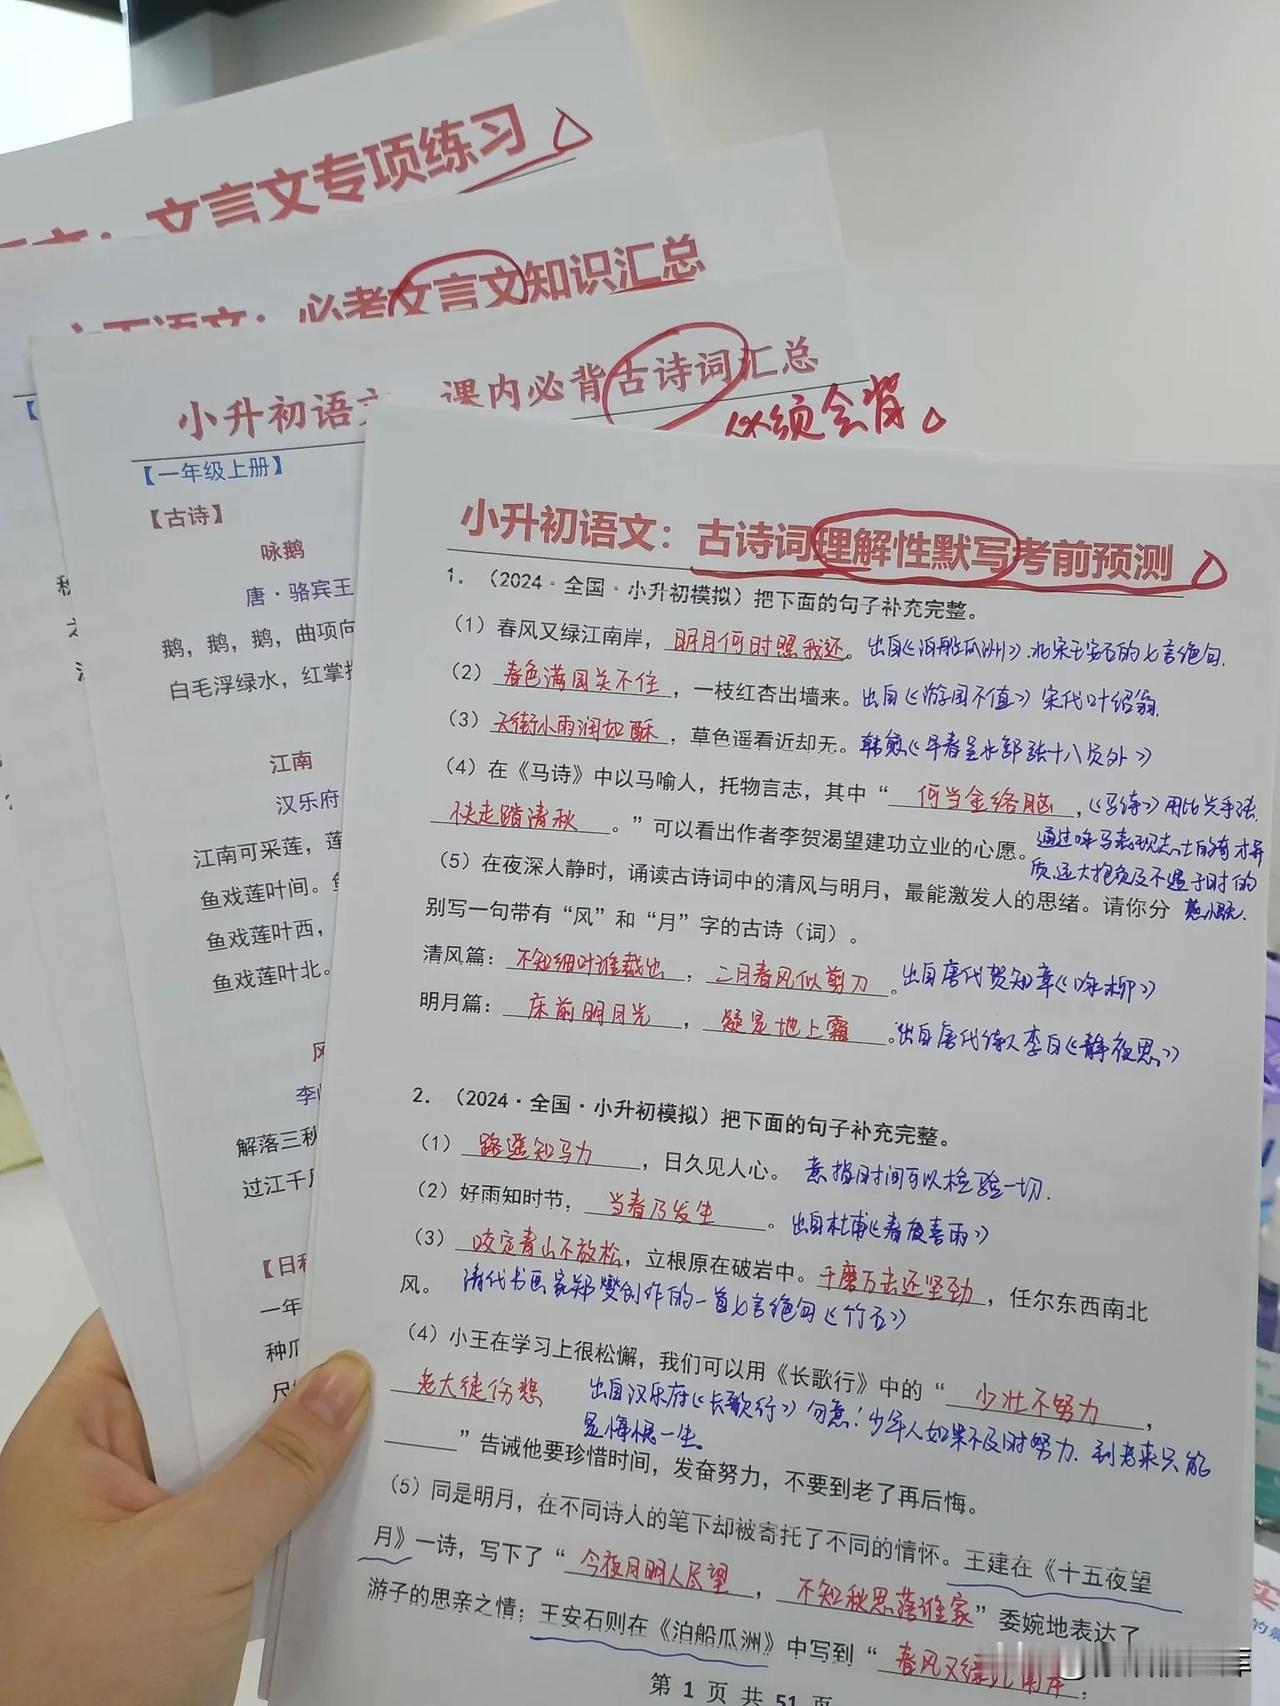 文言文专项练习
必考文言文知识汇总
小升初语文 课内必背古诗词汇总
必须会背。
【一年级上册】
【古诗】
咏鹅
唐·骆宾王
鹅，鹅，鹅，曲项向
白毛浮绿水，红掌拨
江南
汉乐府
江南可采莲，莲
鱼戏莲叶间。鱼
鱼戏莲叶西，
鱼戏莲叶北。
风
李
解落三秋
过江千尺
【日积
一年
种瓜
小升初语文：古诗词理解性默写考前预测
1. （2024·全国·小升初模拟）把下面的句子补充完整。
（1）春风又绿江南岸，明月何时照我还。出自《泊船瓜洲》.北宋王安石的七言绝句.
（2）春色满园关不住，一枝红杏出墙来。出自《游园不值》宋代叶绍翁.
（3）天街小雨润如酥，草色遥看近却无。韩愈《早春呈水部张十八员外》
（4）在《马诗》中以马喻人，托物言志，其中“何当金络脑，《马诗》用比兴手法.
快走踏清秋。”可以看出作者李贺渴望建功立业的心愿。通过咏马表现志士的奇才异
质、远大抱负及不遇于时的
（5）在夜深人静时，诵读古诗词中的清风与明月，最能激发人的思绪。请你分
别写一句带有“风”和“月”字的古诗（词）。
清风篇：不知细叶谁裁出，二月春风似剪刀。出自唐代贺知章《咏柳》
明月篇：床前明月光，疑是地上霜。出自唐代诗人李白《静夜思》
2. （2024·全国·小升初模拟）把下面的句子补充完整。
（1）路遥知马力，日久见人心。意指时间可以检验一切.
（2）好雨知时节，当春乃发生。出自杜甫《春夜喜雨》
（3）咬定青山不放松，立根原在破岩中。千磨万击还坚劲，任尔东西南北
风。清代书画家郑燮创作的一首七言绝句《竹石》
（4）小王在学习上很松懈，我们可以用《长歌行》中的“少壮不努力，
老大徒伤悲 出自汉乐府《长歌行》句意：少年人如果不及时努力.到老来只能
是悔恨一生。
”告诫他要珍惜时间，发奋努力，不要到老了再后悔。
（5）同是明月，在不同诗人的笔下却被寄托了不同的情怀。王建在《十五夜望
月》一诗，写下了“今夜月明人尽望，不知秋思落谁家”委婉地表达了
游子的思亲之情；王安石则在《泊船瓜洲》中写到“春风又绿江南岸；
第 1 页 共 51 页